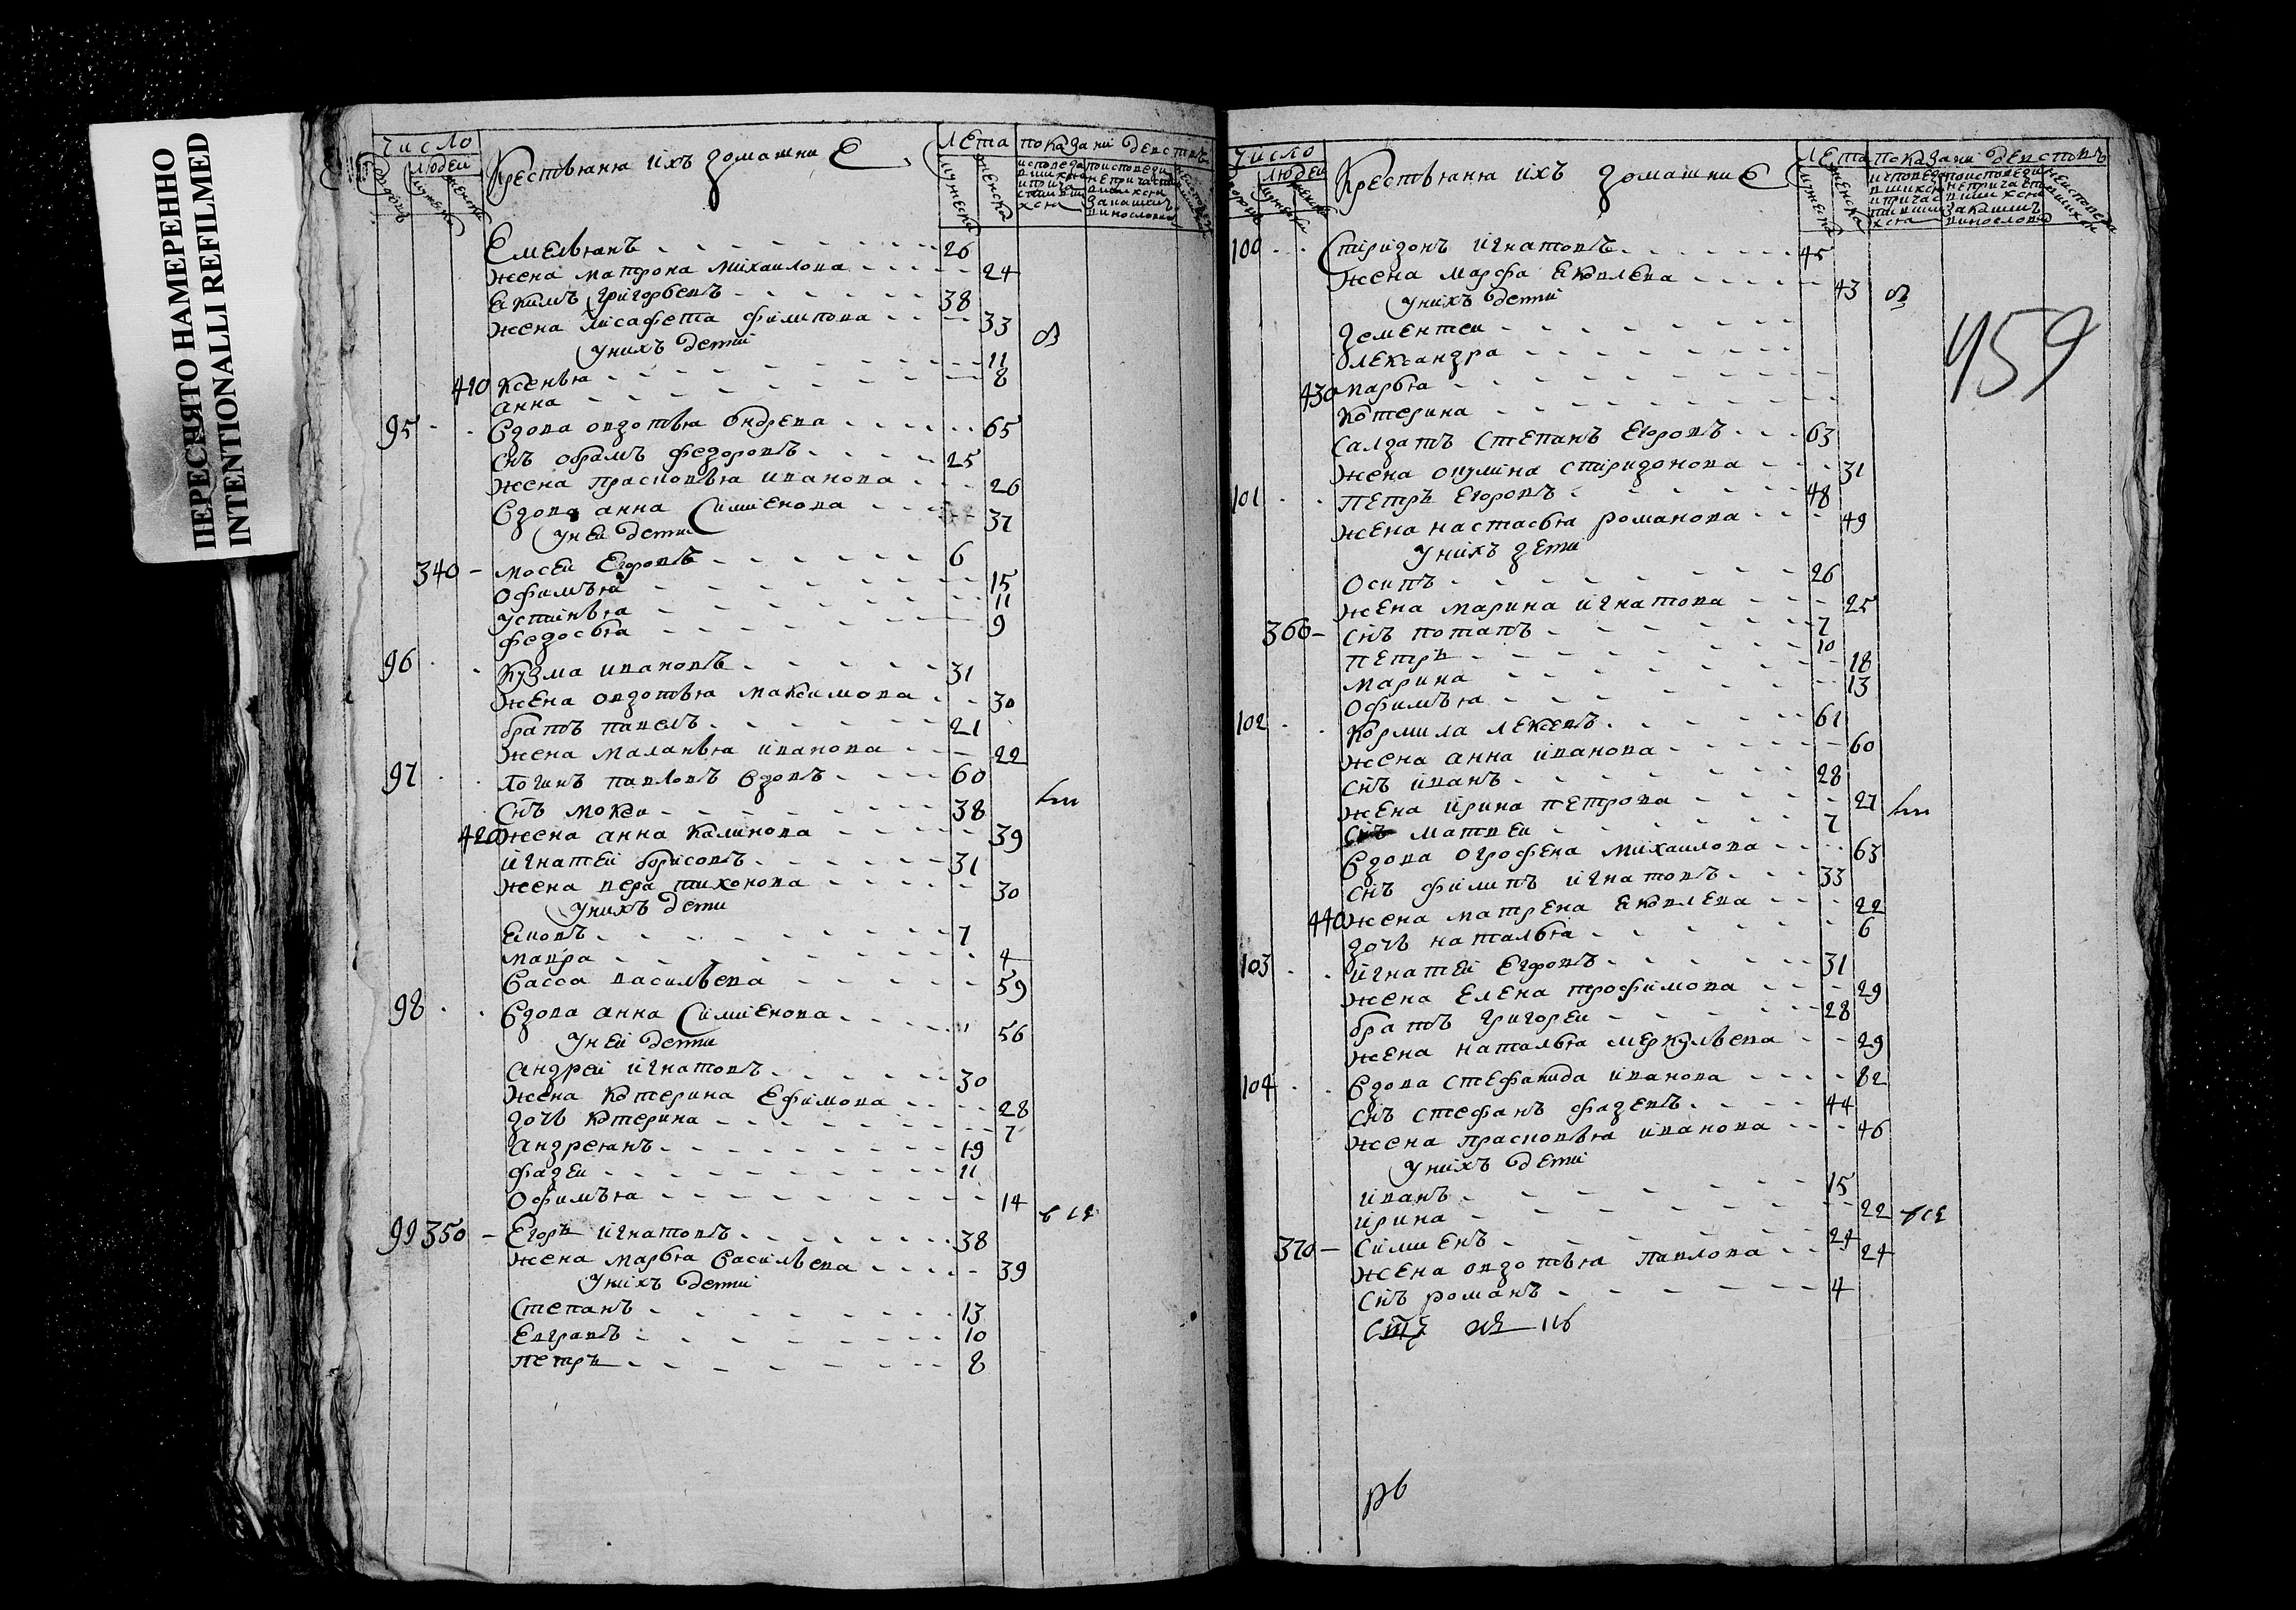 ПЕРЕСНЯТО НАМЕРЕННО
INTENTIONALLI REFILMED
число
людей
Крестьяня ихъ домашния
лета
показани действъ
мужеска
женска
Емельянъ 26
жена матрона михаилова 24
Екимъ григорьевъ 38
жена лисафета филипова 33
у нихъ дети
410 Ксенья 11
анна 8
95 вдова овдотья ондрева 65
снъ обрамъ федоровъ 25
жена прасковья иванова 26
вдова анна симиенова 37
у ней дети
340 мосей Егоровъ 6
офимья 15
устинья 11
федосья 9
96 Кузма ивановъ 31
жена овдотья максимова 30
братъ павелъ 21
жена маланья иванова 22
97 логинъ павловъ вдовъ 60
снъ мокеи 38
420 жена анна калинова 39
игнатей борисовъ 31
жена вера тихонова 30
у нихъ дети
Еиовъ 7
мавра 4
васса васильева 59
98 вдова анна симиенова 56
у ней дети
андрей игнатовъ 30
жена котерина Ефимова 28
дочь котерина 7
андреянъ 19
фадеи 11
офимья 14
99 350 Егоръ игнатовъ 38
жена марья васильева 39
у нихъ дети
степанъ 13
Евгравъ 10
петръ 8
число
людей
Крестьяня ихъ домашния
лета
показани действъ
459
100 спиридонъ игнатовъ 45
жена марфа Яковлева 43
у нихъ дети
дементеи
олександра
430 марья
котерина
салдатъ степанъ Егоровъ 63
жена окулина спиридонова 31
101 петръ Егоровъ 48
жена настасья романова 49
у нихъ дети
осипъ 26
жена марина игнатова 25
360 снъ потапъ 7
петръ 10
марина 18
офимья 13
102 кормила лексевъ 61
жена анна иванова 60
снъ иванъ 28
жена ирина петрова 27
снъ матвеи 7
вдова огрофена михаилова 63
снъ филипъ игнатовъ 33
440 жена матрена Яковлева 22
дочь наталья 6
103 игнатей Егоровъ 31
жена Елена трофимова 29
братъ григореи 28
жена наталья меркульева 29
104 вдова стефанида иванова 82
снъ стефанъ фадевъ 44
жена прасковья иванова 46
у нихъ дети
иванъ 15
ирина 22
370 симиенъ 24
жена овдотья павлова 24
снъ романъ 4
116